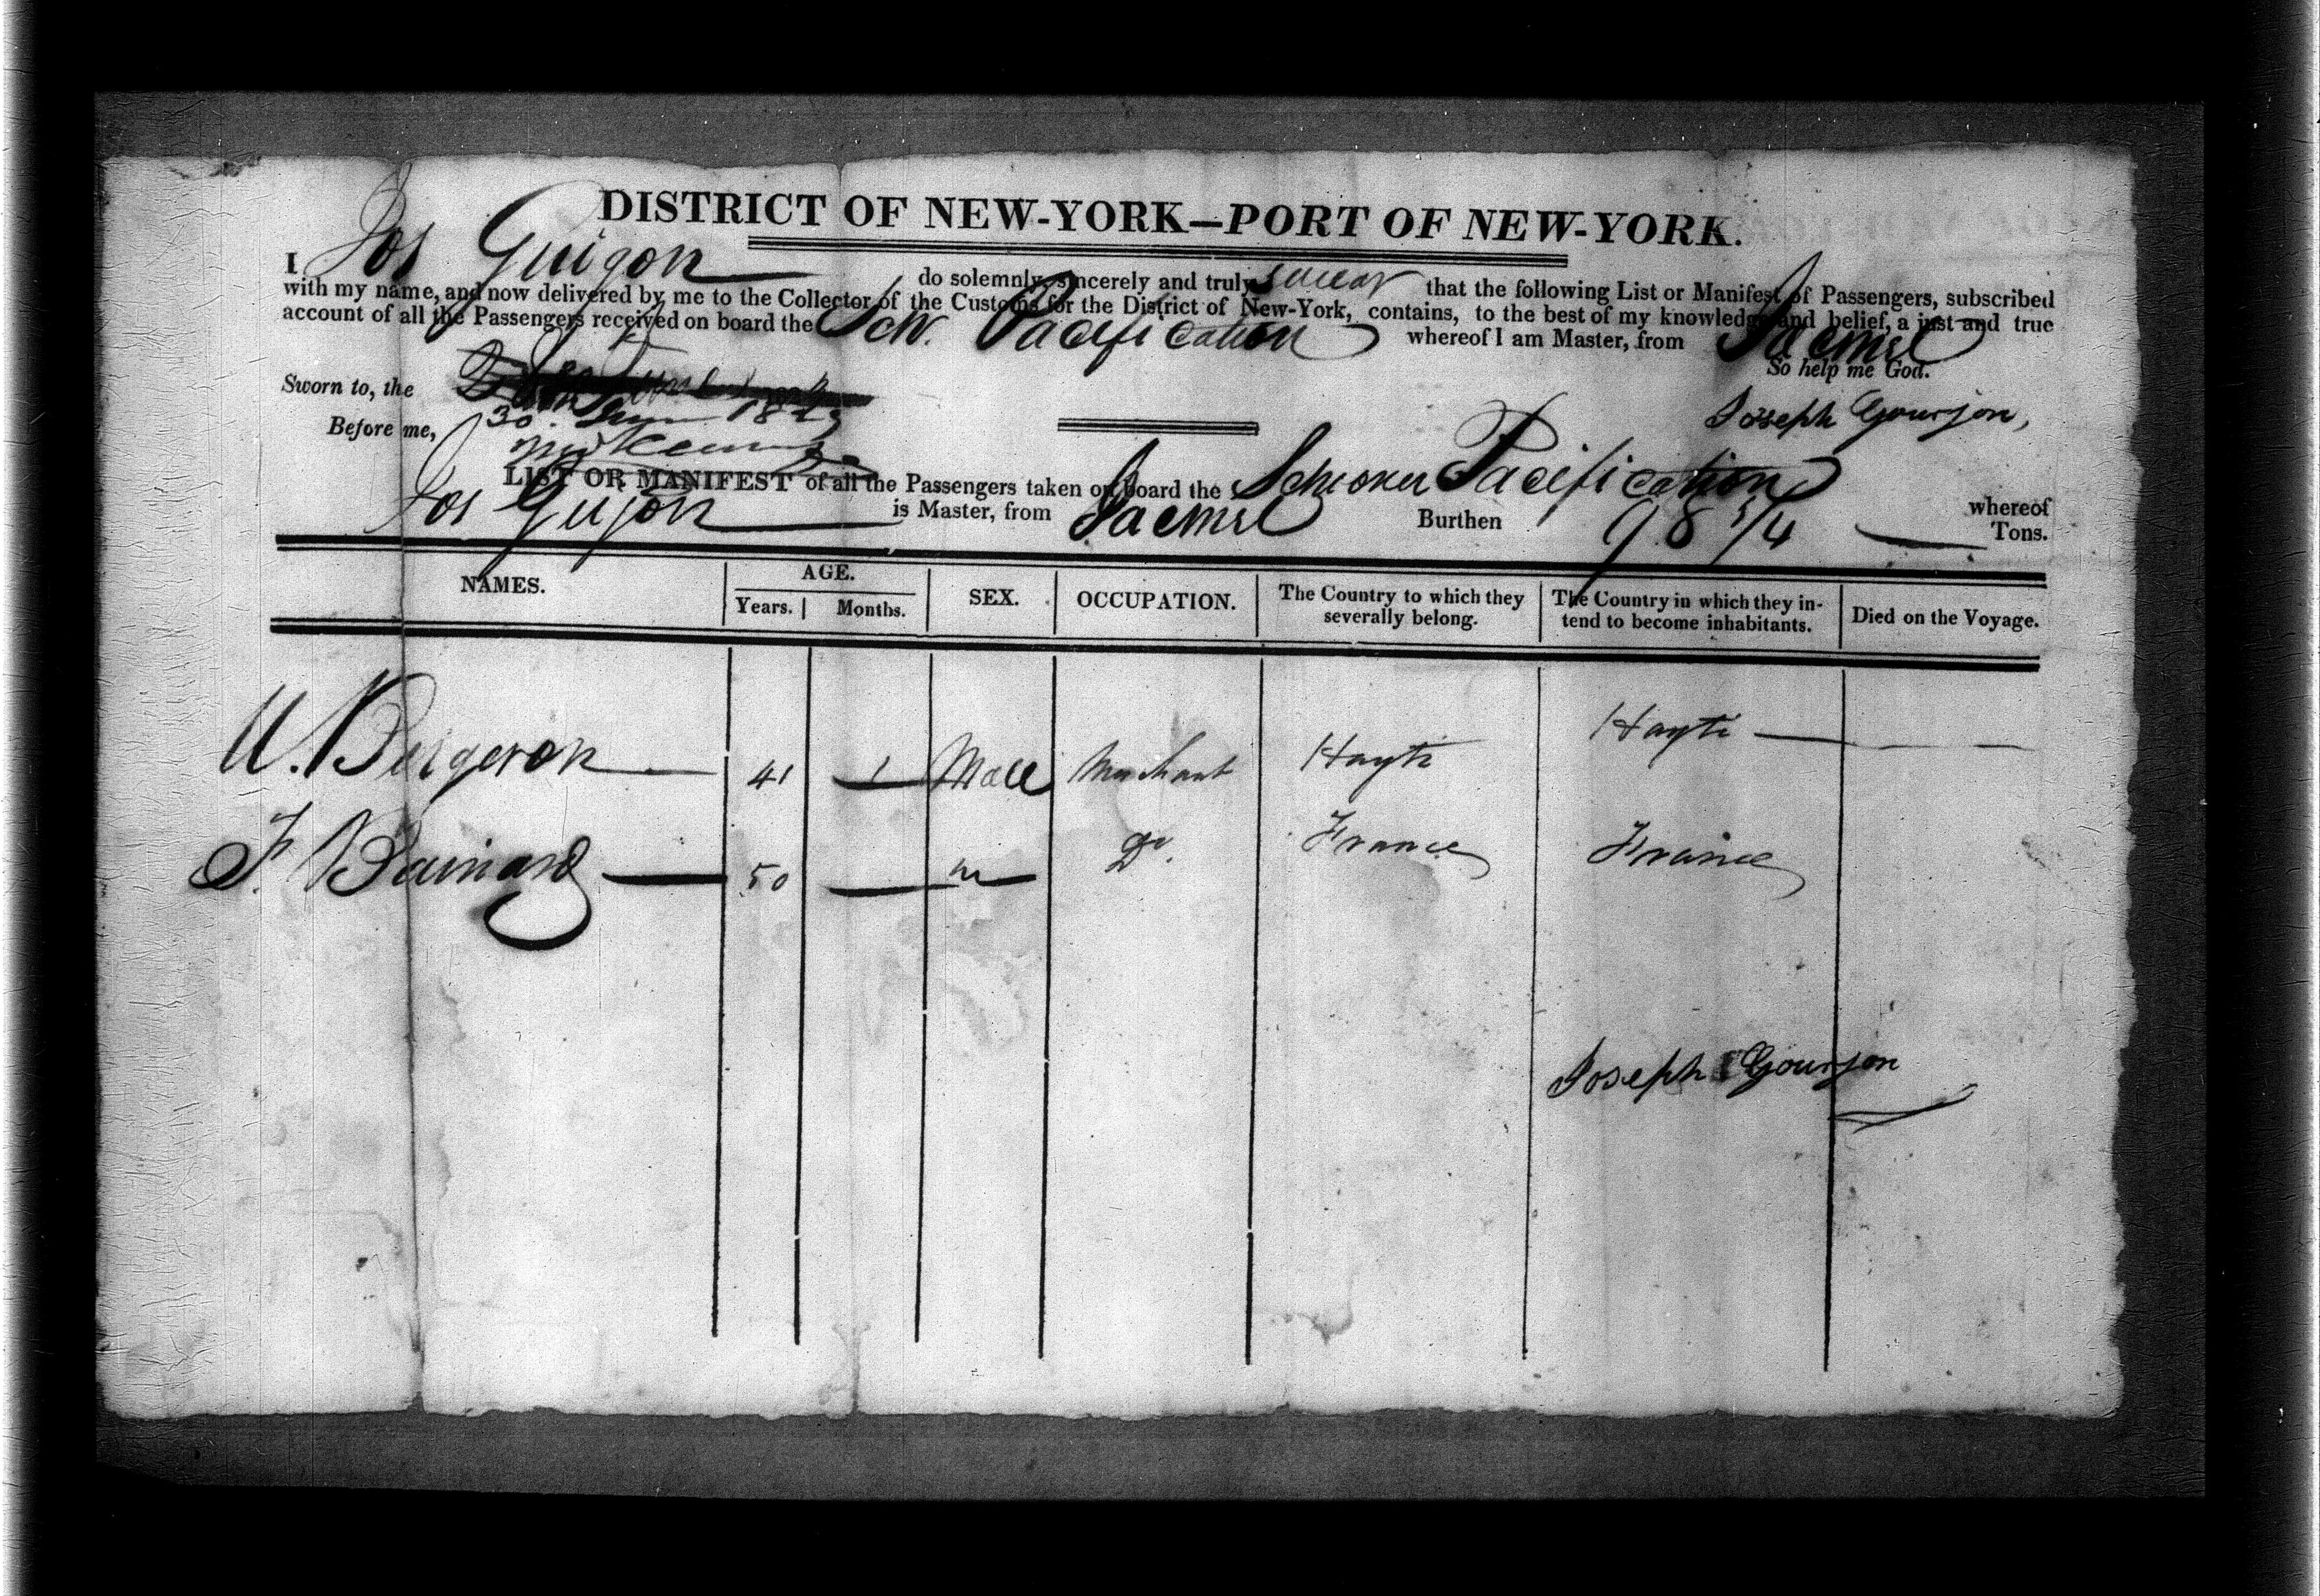 DISTRICT OF NEW-YORK—PORT OF NEW-YORK.
I Jos Guigon do solemnly, sincerely and truly swear that the following List or Manifest of Passengers, subscribed
with my name, and now delivered by me to the Collector of the Customs for the District of New-York, contains, to the best of my knowledge and belief, a just and true
account of all the Passengers received on board the Schr. Pacification whereof I am Master, from Jacmel
So help me God.
Sworn to, the
30 1823
Joseph Gourjon,
Before me,
LIST OR MANIFEST of all the Passengers taken on board the Schooner Pacification whereof
Jos Gujon is Master, from Jacmel Burthen 98 3/4 Tons.
NAMES. AGE. Years. Months. SEX. OCCUPATION. The Country to which they severally belong. The Country in which they intend to become inhabitants. Died on the Voyage.
W. Bergeron 41 Male Merchant Hayti Hayti
F. Bainard 50 m Do. France France
Joseph Gourjon